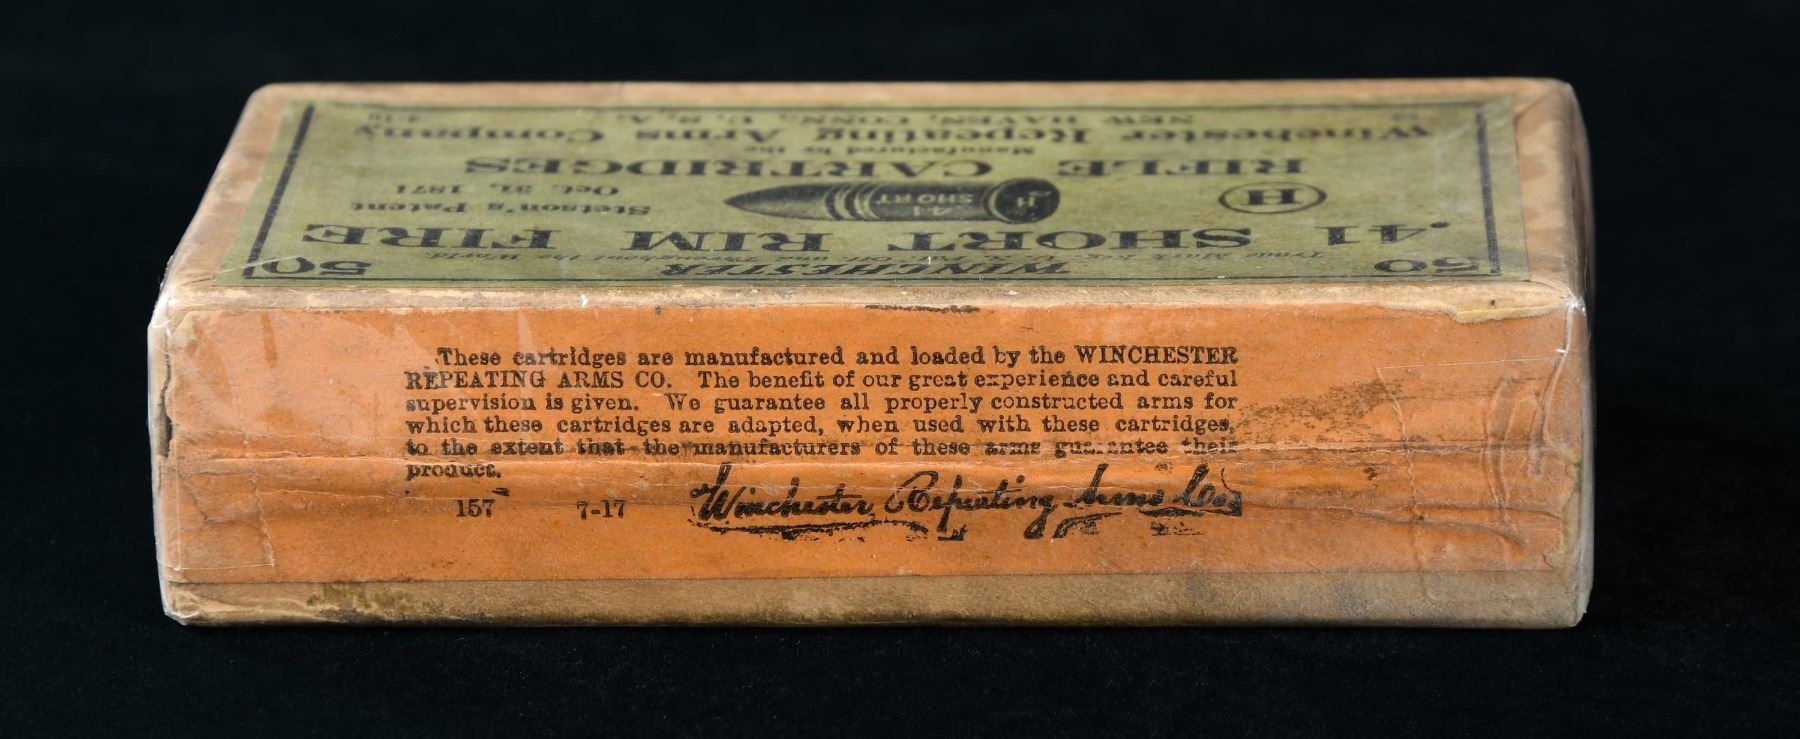 50 WINCHESTER 50
Trade Mark Reg. U.S. Pat. Off. and Throughout the World.
.41 SHORT RIM FIRE
H
.41
SHORT
H
Stetson's Patent
Oct. 31, 1871
RIFLE CARTRIDGES
Manufactured by the
Winchester Repeating Arms Company
NEW HAVEN, CONN., U. S. A.
These cartridges are manufactured and loaded by the WINCHESTER
REPEATING ARMS CO. The benefit of our great experience and careful
supervision is given. We guarantee all properly constructed arms for
which these cartridges are adapted, when used with these cartridges,
to the extent that the manufacturers of these arms guarantee their
product.
157 7-17 Winchester Repeating Arms Co.